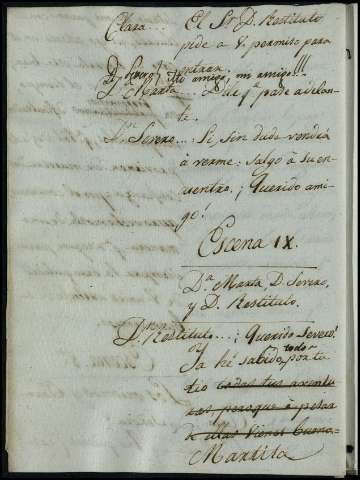 Clara... El Sr. D. Restituto
pide a V. permiso para
entrar.
D. Severo mi amigo, mi amigo!!!
Dª Marta... Que pase adelan-
te.
Dn. Severo... Si, sin duda vendrá
a verme: salgo a su en-
cuentro. ¡Querido ami-
go!
Escena IX.
Dª Marta, D. Severo,
y D. Restituto.
Dn. Restituto...¡Querido Severo!
Ya hé sabido todo por tu
tio todas tus aventu-
ras, porque a pesar
de ellas vienes bueno
Martita